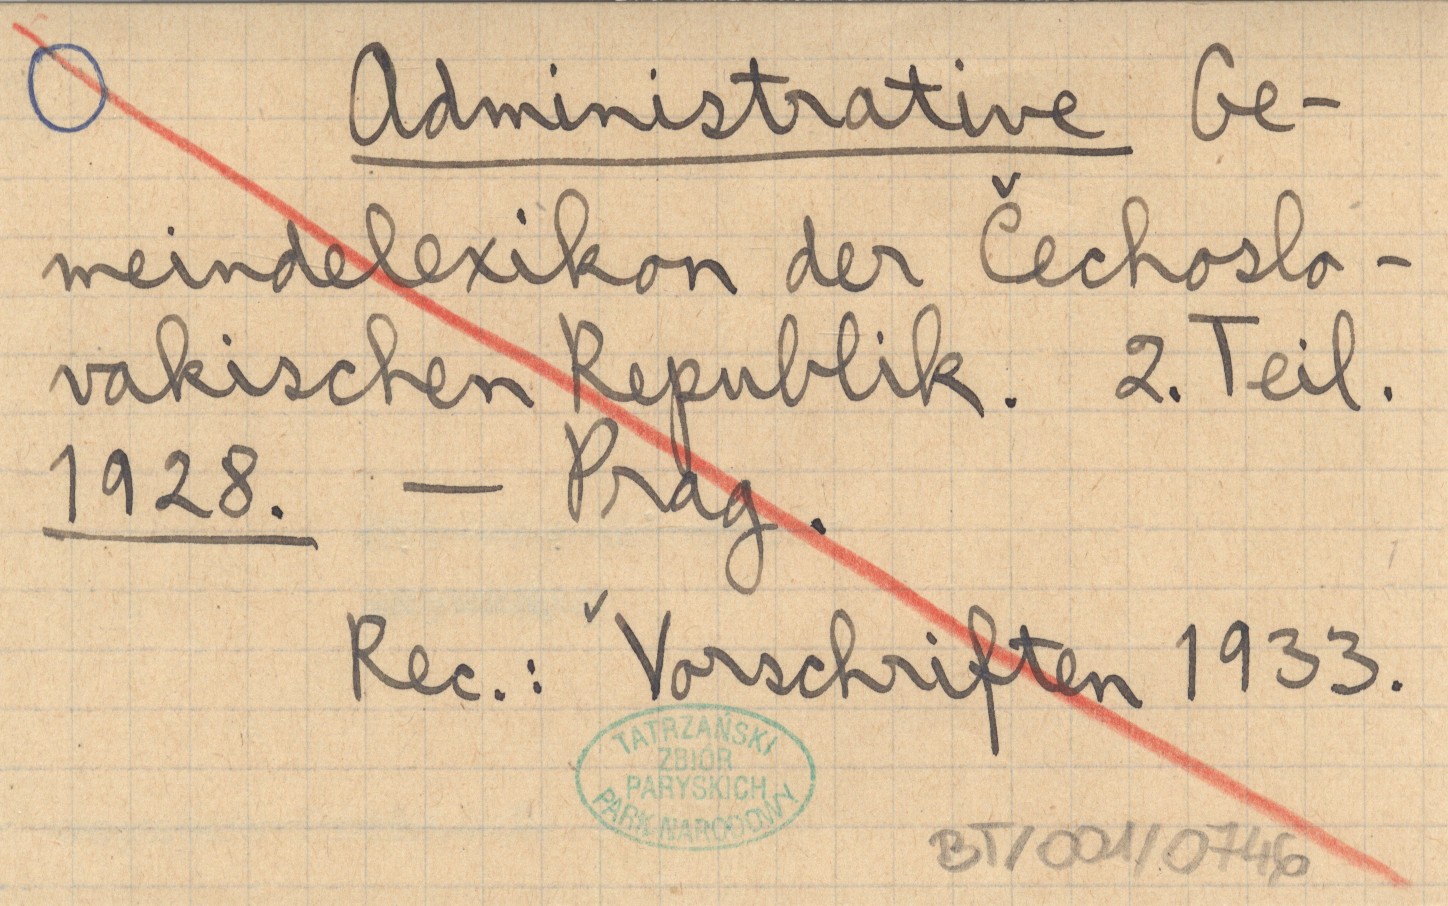 Administrative Ge-
meindelexikon der Čechoslo-
vakischen Republik. 2. Teil.
1928. — Prag.
Rec.: ✓Vorschriften 1933.
TATRZAŃSKI
ZBIÓR
PARYSKICH
PARK NARODOWY
BT/001/0746